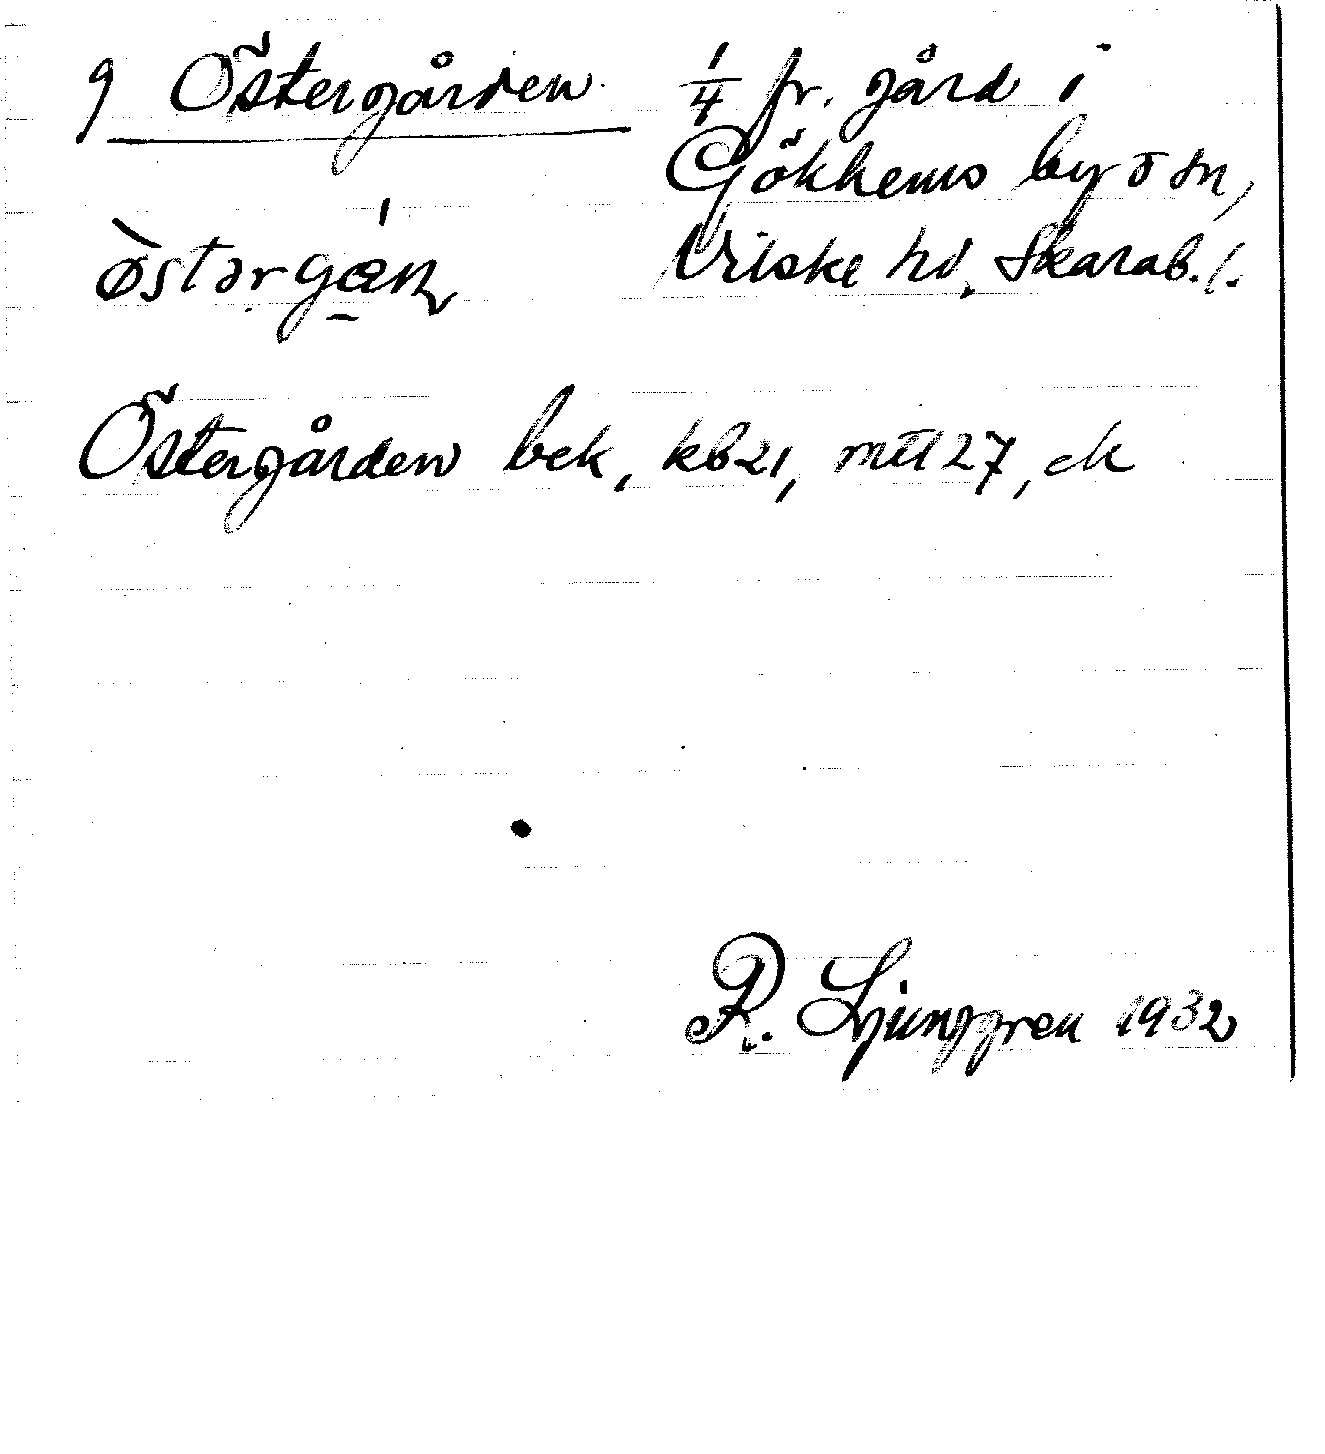 9 Östergården. 1/4 fr. gård i
Gökhems by o sn,
Vilske hd. Skarab. l.
Östergården bek, kb21, mtl 27, ek
R. Ljunggren 1932